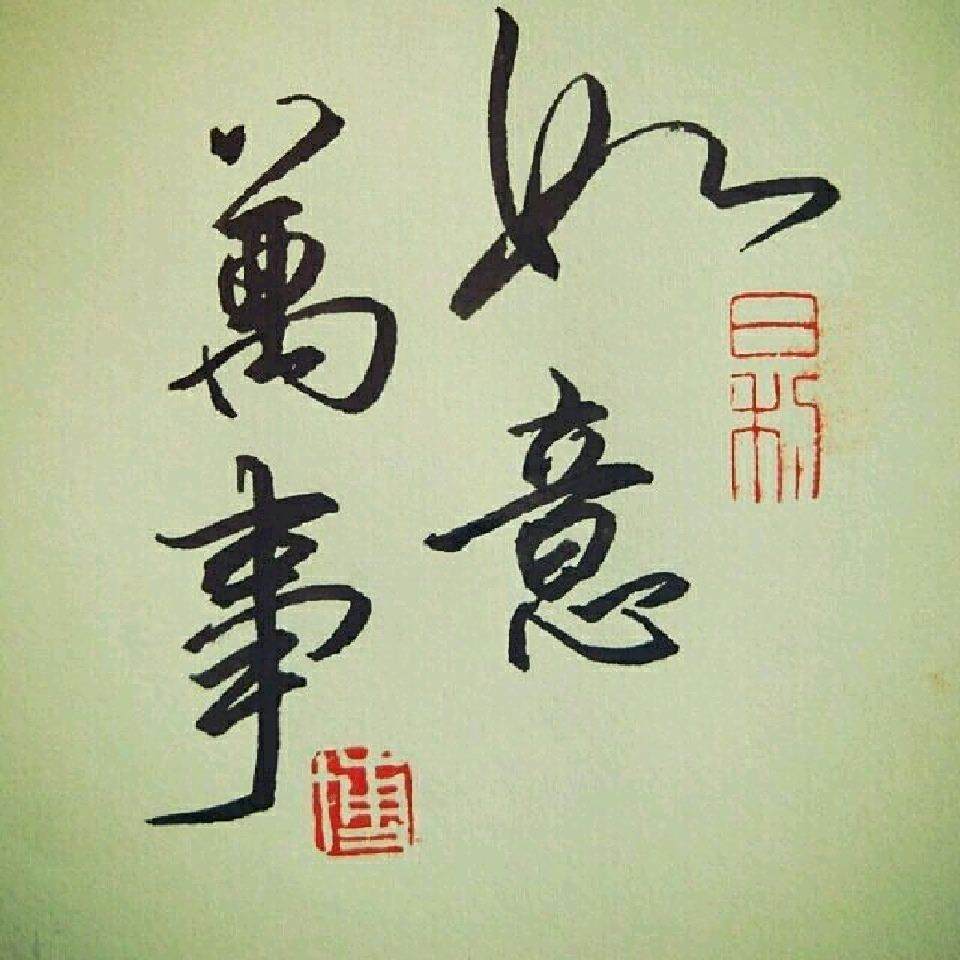 如意
萬事
日利